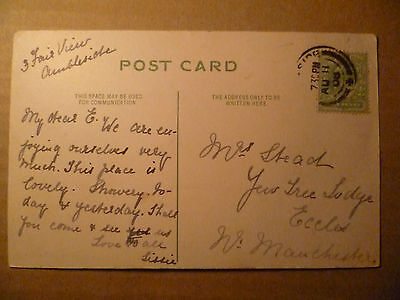 3 Fair View
Ambleside
POST CARD
THIS SPACE MAY BE USED
FOR COMMUNICATION.
THE ADDRESS ONLY TO BE
WRITTEN HERE.
My dear E. We are en-
joying ourselves very
much. This place is
lovely. Showery. to-
day & yesterday. Shall
you come & see us
Love to all
Lissie
Mrs Stead
Yew Tree Lodge
Eccles
Nr. Manchester.
7 30 PM
AU 11